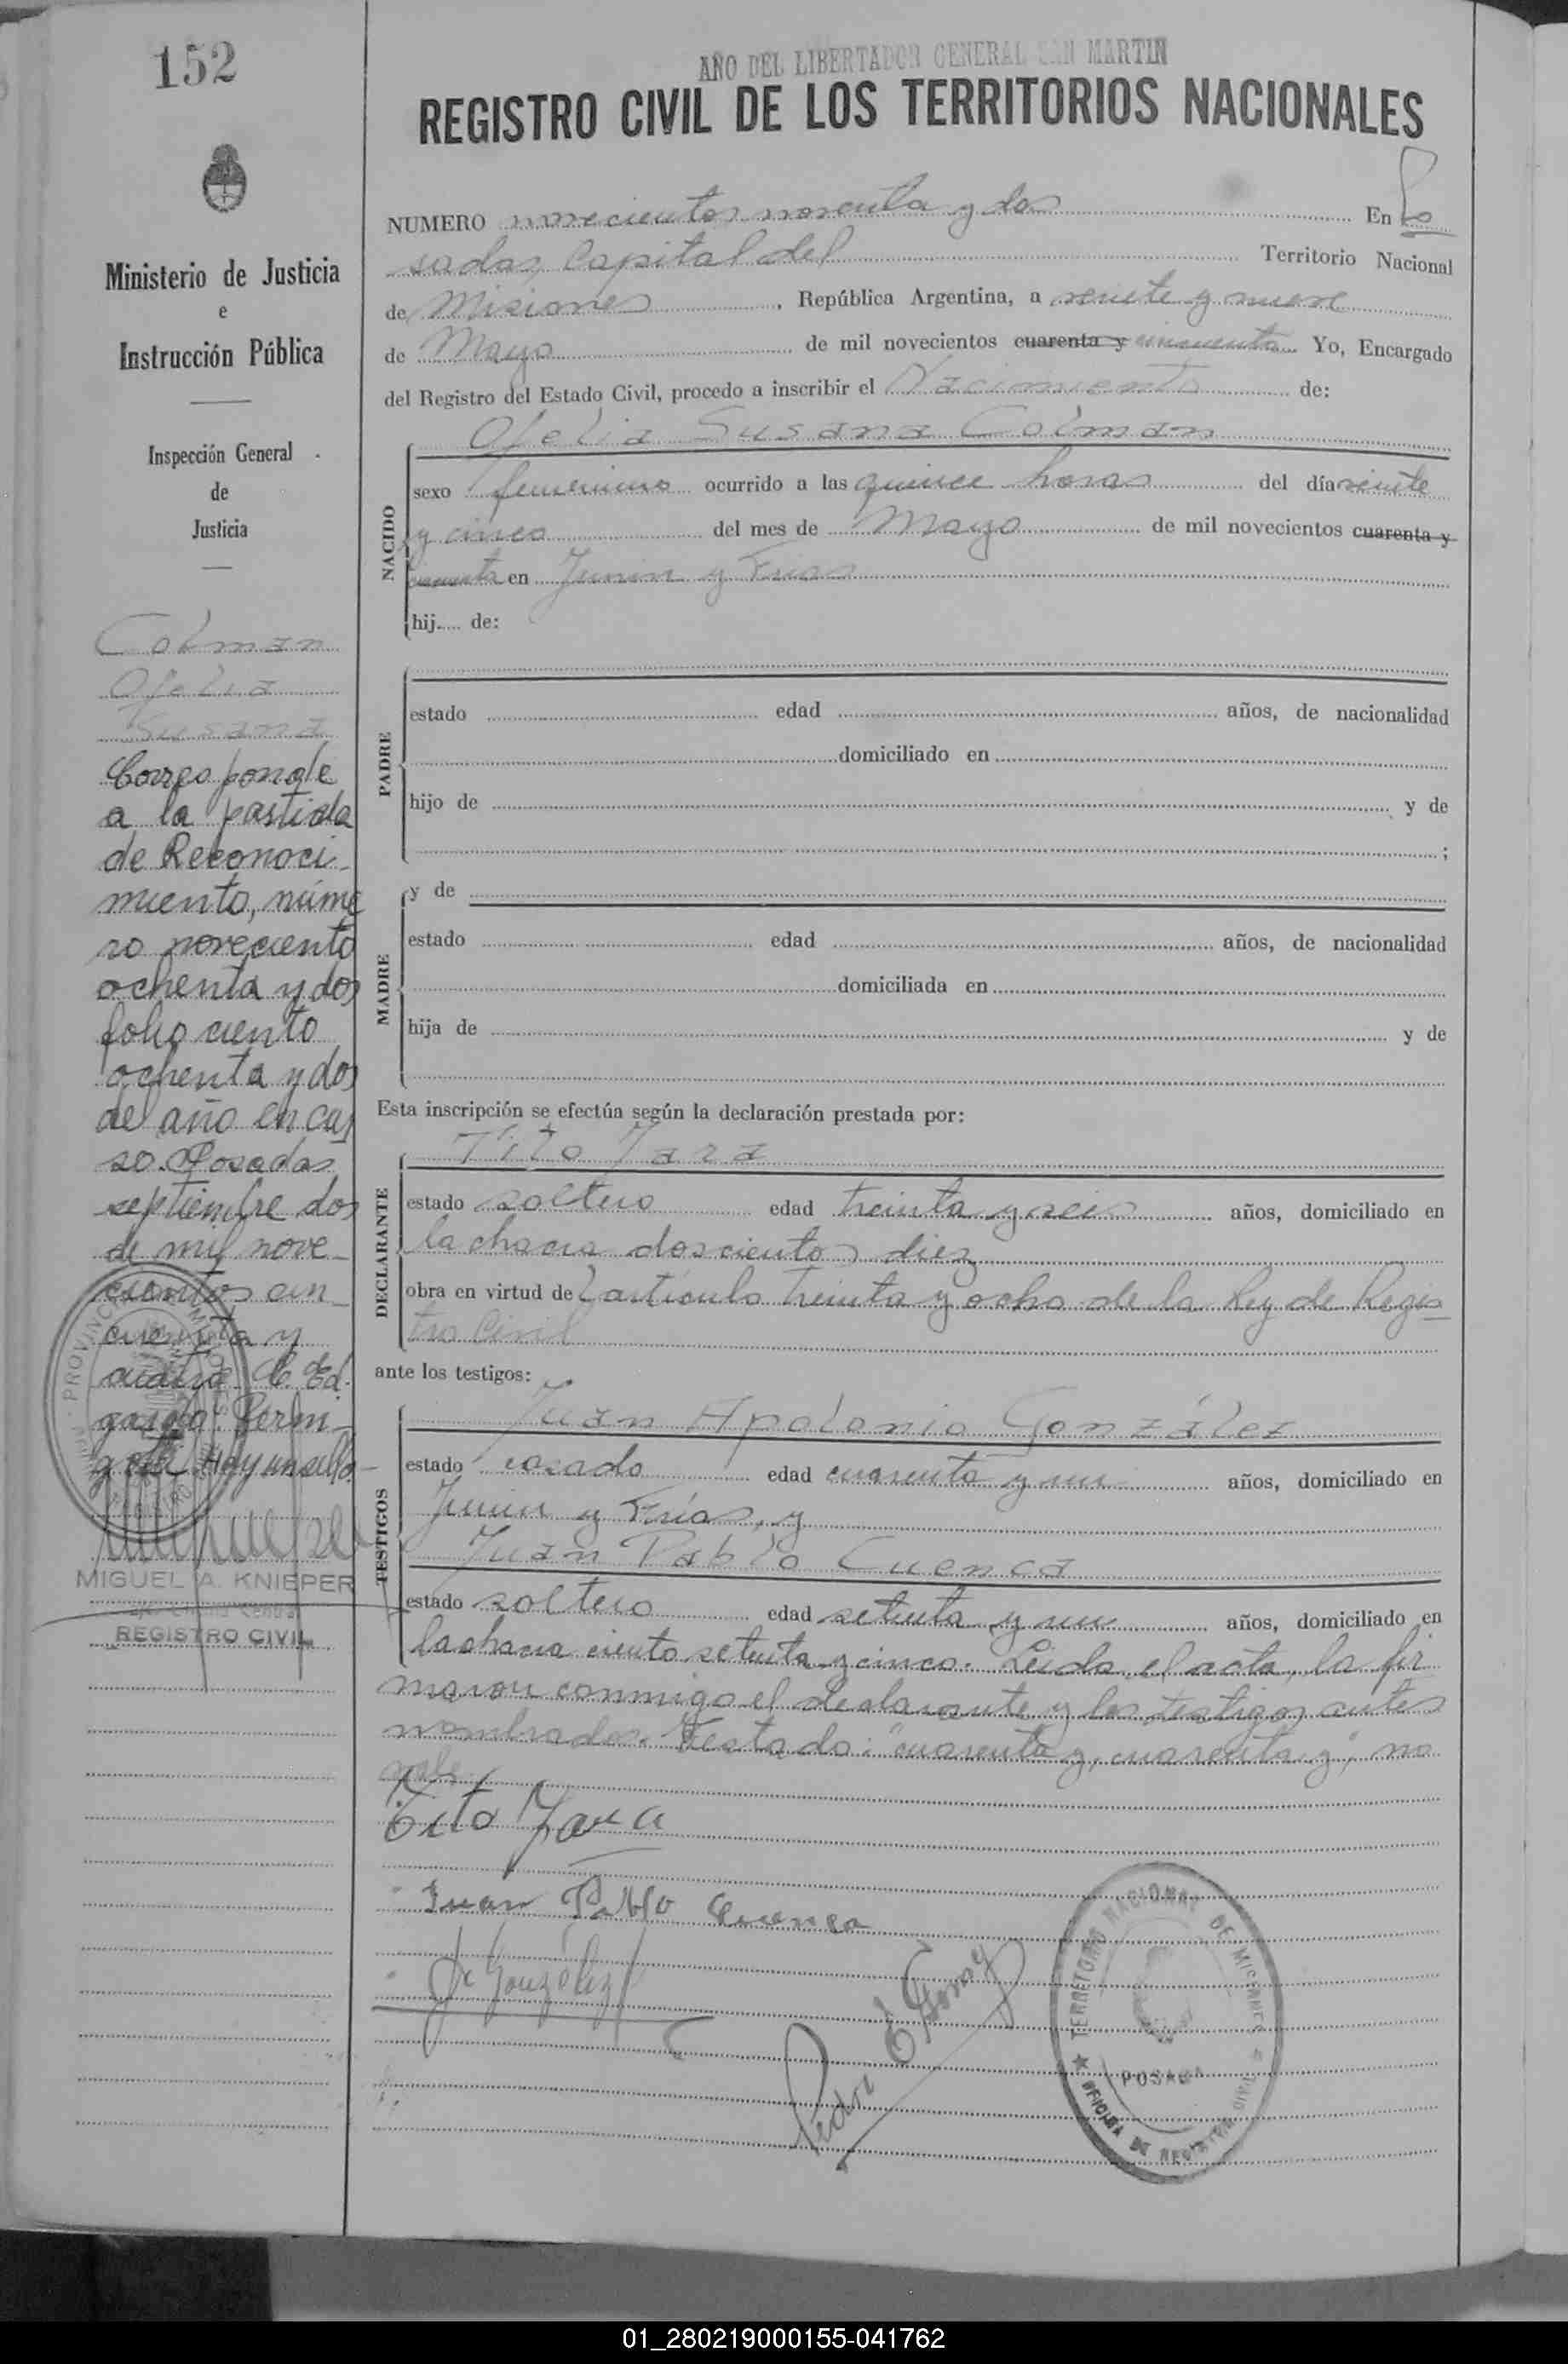 152
AÑO DEL LIBERTADOR GENERAL SAN MARTIN
REGISTRO CIVIL DE LOS TERRITORIOS NACIONALES
Ministerio de Justicia
e
Instrucción Pública
Inspección General
de
Justicia
Colman
Ofelia
Susana
Corresponde
a la partida
de Reconoci
miento, núme
ro noveciento
ochenta y dos
folio ciento
ochenta y dos
del año en cur
so. Posadas
septiembre dos
de mil nove
cientos cin
cuenta y
cuatro. C. Ed.
gardo Fermi
Hay un sello
MIGUEL A. KNIEPER
REGISTRO CIVIL
NUMERO novecientos noventa y dos En Po
sadas, Capital del Territorio Nacional
de Misiones, República Argentina, a veinte y nueve
de Mayo de mil novecientos cuarenta y cincuenta Yo, Encargado
del Registro del Estado Civil, procedo a inscribir el Nacimiento de:
NACIDO
Ofelia Susana Colman
sexo femenino ocurrido a las quince horas del día veinte
y cinco del mes de Mayo de mil novecientos cuarenta y
cincuenta en Junin y Frias
hij.... de:
PADRE
estado edad años, de nacionalidad
domiciliado en
hijo de y de
;
MADRE
y de
estado edad años, de nacionalidad
domiciliada en
hija de y de
Esta inscripción se efectúa según la declaración prestada por:
DECLARANTE
Tito Jara
estado soltero edad treinta y seis años, domiciliado en
la chacra doscientos diez
obra en virtud del artículo treinta y ocho de la Ley de Regis
tro Civil
ante los testigos:
TESTIGOS
Juan Apolonio González
estado casado edad cuarenta y un años, domiciliado en
Junin y Frías, y
Juan Pablo Cuenca
estado soltero edad setenta y un años, domiciliado en
la chacra ciento setenta y cinco. Leida el acta, la fir
maron conmigo el declarante y los testigos antes
nombrados. Testado: "cuarenta y, cuarenta y", no
vale.
Tito Jara
Juan Pablo Cuenca
J. A. González
TERRITORIO NACIONAL DE MISIONES
POSADAS
OFICINA DE REGISTRO CIVIL
01_280219000155-041762